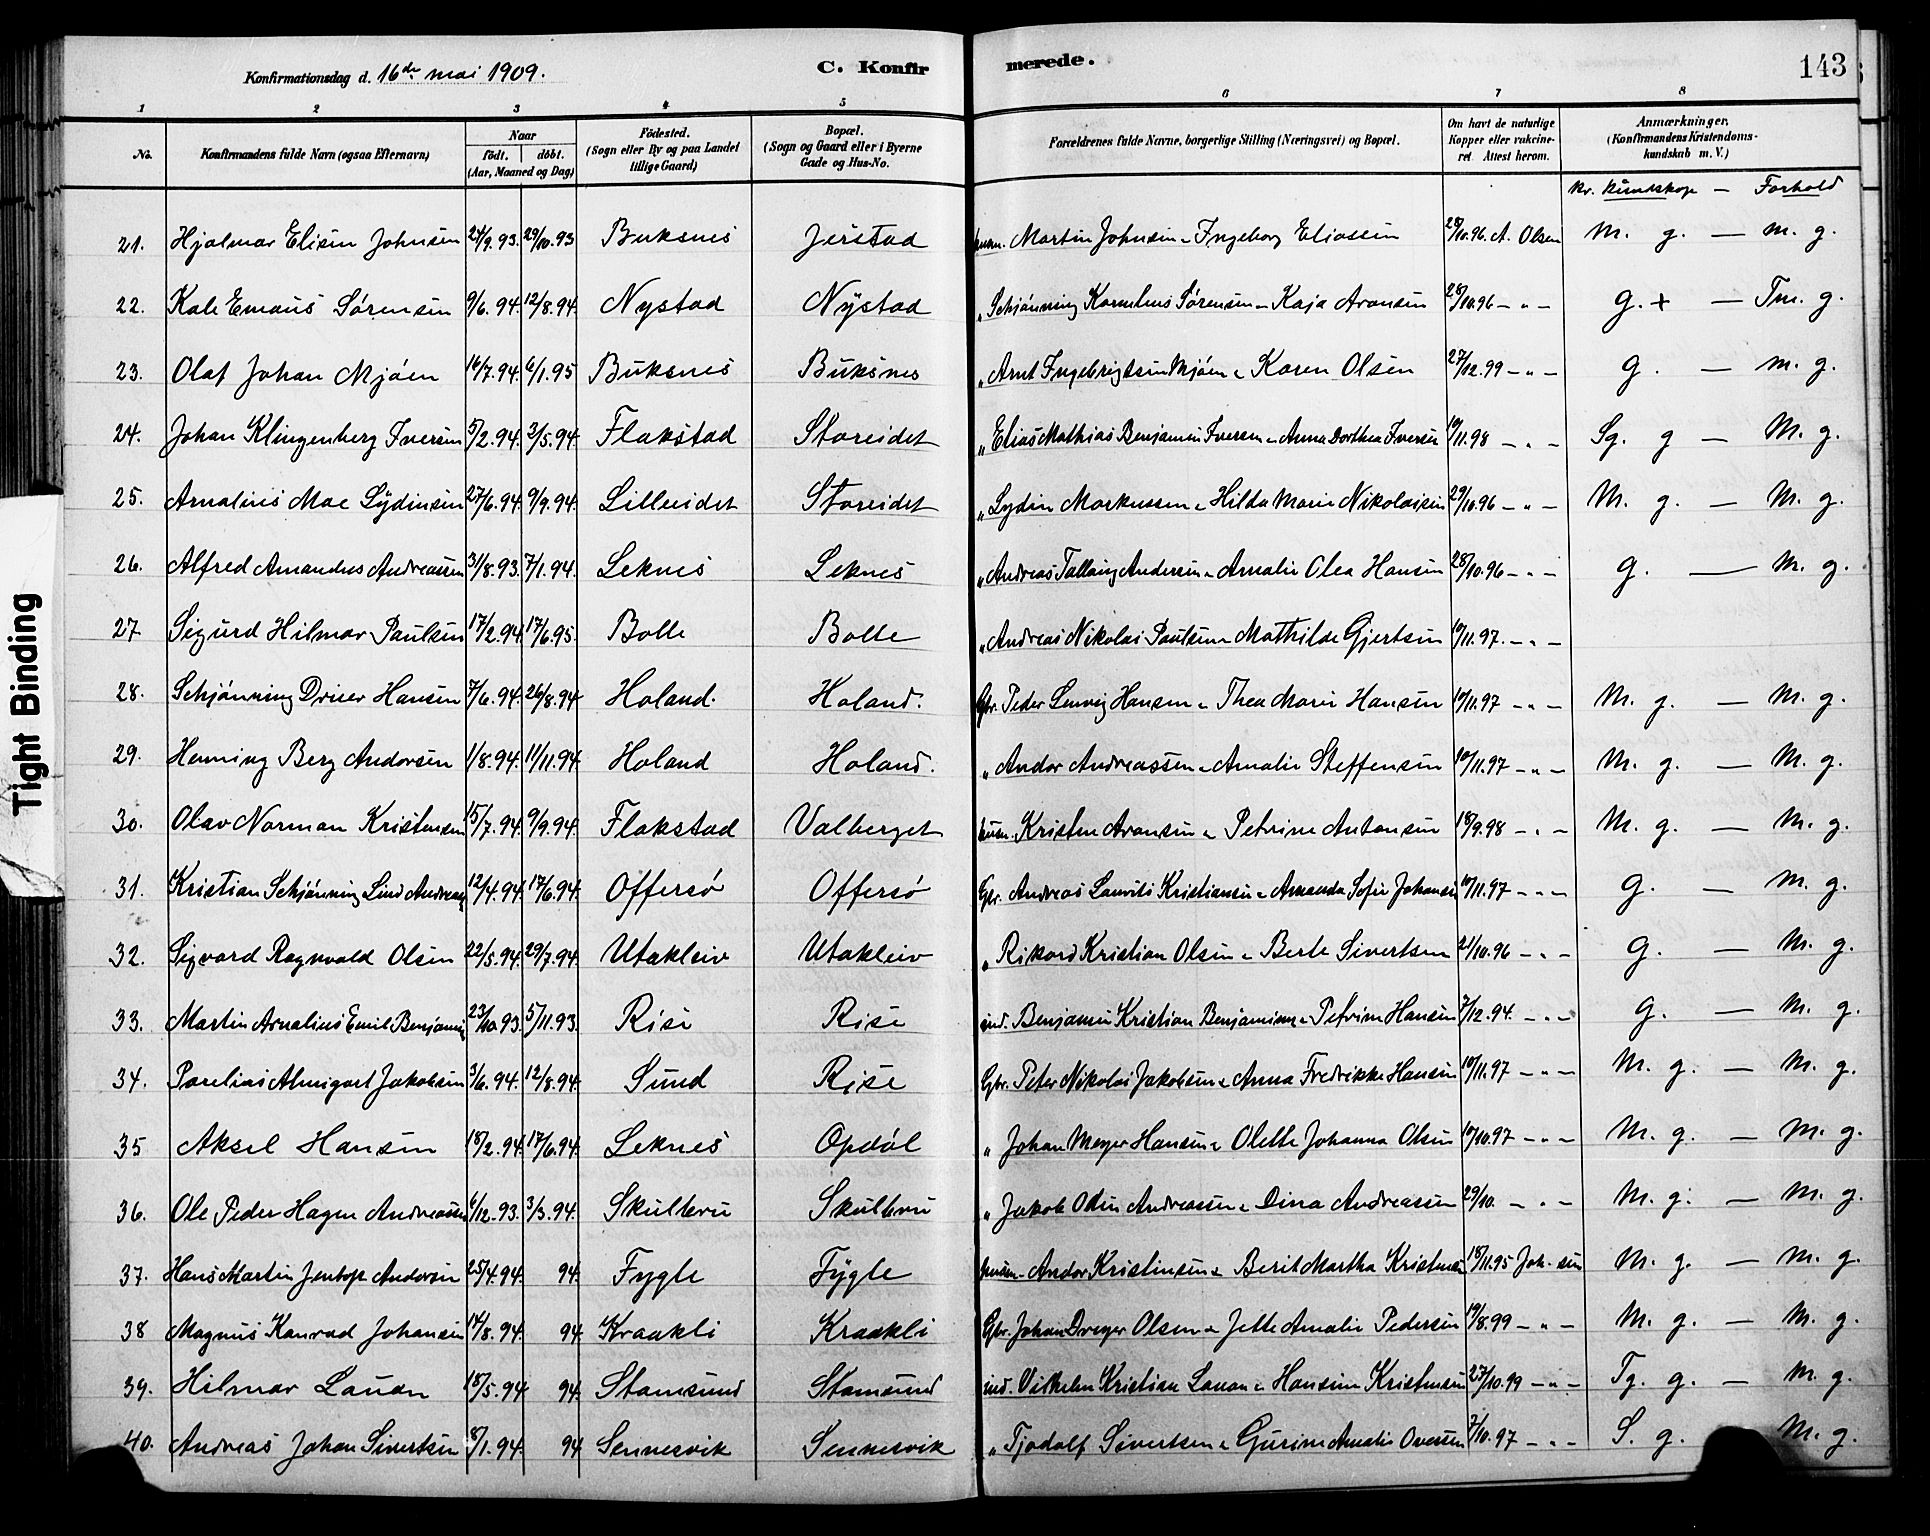 Konfirmationsdag d. 16de mai 1909.
C. Konfirmerede.
143
1 2 3 4 5 6 7 8
No. Konfirmandens fulde Navn (ogsaa Efternavn) Naar födt. döbt. (Aar, Maaned og Dag) Födested. (Sogn eller By og paa Landet tillige Gaard) Bopæl. (Sogn og Gaard eller i Byerne Gade og Hus-No. Forældrenes fulde Navne, borgerlige Stilling (Næringsvei) og Bopæl. Om havt de naturlige Kopper eller vakcineret. Attest herom. Anmærkninger. (Konfirmandens Kristendomskundskab m. V.)
Kr. Kundskap — Forhold
21. Hjalmar Elisen Johnsen 24/9.93. 29/10.93 Buksnes Jerstad Martin Johnsen - Ingeborg Eliassen 28/10.96. A. Olsen M. g. — m. g.
22. Kale Emaus Sørensen 9/6.94. 12/8.94. Nystad Nystad " Schjønning Kornelius Sørensen - Kaja Aronsen 28/10.96 - " - g. + — Tm. g.
23. Olaf Johan Mjøen 16/7.94. 6/1.95 Buksnes Buksnes " Arnt Ingebrigtsen Mjøen - Karen Olsen 27/12.99 - " - g. — m. g.
24. Johan Klingenberg Iversen 5/2.94. 3/5.94. Flakstad Storeidet " Elias Mathias Benjamin Iversen - Anna Dorthea Iversen 10/11.98 - " - Sg. g — M. g.
25. Arnalius Mac Lydinsen 27/6.94. 9/9.94. Lilleeidet Storeidet " Lydin Markussen - Hilda Marie Nikolaisen 29/10.96 - " - M. g. — M. g.
26. Alfred Amandus Andreassen 31/8.93. 7/1.94. Leknes Leknes " Andreas Andersen - Amalie Olea Hansen 28/10.96 - " - g. — M. g.
27 Sigurd Hilmar Paulsen 17/2.94. 17/6.95. Bolle Bolle " Andreas Nikolai Paulsen - Mathilde Gjertsen 10/11.97. - " -
28. Schjønning Driver Hansen 7/6.94. 26/8.94 Holand. Holand. Gbr. Peder Lenvig Hansen - Thea Marie Hansen 10/11.97 - " - M. g. — M. g.
29. Henning Berg Andorsen 1/8.94. 11/11.94. Holand Holand. " Andor Andreassen - Amalie Steffensen 10/11.97 - " - M. g. — M. g.
30. Olav Norman Kristensen 15/7.94. 9/9.94. Flakstad Valberget Kristen Aronsen - Petrine Antonsen 18/9.98 - " - M. g. — M. g.
31. Kristian Schjønning Lind Andreas 12/4.94. 17/6.94. Offersø Offersø Gbr. Andreas Laurits Kristiansen - Amanda Sofie Johansen 10/11.97 - " - g. — M. g.
32. Sigvard Ragnvald Olsen 22/5.94. 29/7.94. Utakleiv Utakleiv " Rikard Kristian Olsen - Berte Sivertsen 21/10.96 - " - g. — M. g.
33. Martin Arnalius Emil Benjamin 23/10.93. 5/11.93. Rise Rise ind. Benjamin Kristian Benjaminsen - Petrine Hansen 7/12.94. - " - g. — M. g.
34. Parelius Jakobsen 3/6.94. 12/8.94. Sund Rise Gbr. Peter Nikolai Jakobsen - Anna Fredrikke Hansen 10/11.97 - " - M. g. — M. g.
35 Aksel Hansen 18/2.94. 17/6.94. Leknes Opdøl " Johan Meyer Hansen - Olette Johanna Olsen 10/10.97 - " - M. g. — M. g.
36. Ole Peder Hagen Andreassen 6/12.93. 3/3.94. Skulbru Skulbru " Jakob Odin Andreassen - Dina Andreassen 29/10. - " - M. g. — M. g.
37. Hans Martin Jentoft Andorsen 25/4.94. 94. Fygle Fygle Andor Kristensen - Berit Martha Kristensen 18/11.95 Joh-sen M. g. — M. g.
38 Magnus Konrad Johansen 14/8.94. 94. Kraakli Kraakli Gbr. Johan Dreyer Olsen - Jette Amalie Pedersen 19/8.99 - " - M. g. — M. g.
39. Hilmar Lauan 18/5.94. 94. Stamsund Stamsund ind. Vilhelm Kristian Lauan - Hansine Kristensen 27/10.99 - " - Tg. g. — M. g.
40. Andreas Johan Sivertsen 8/1.94. 94 Sennesvik Sennesvik " Tjodolf Sivertsen - Gurine Amalie Oversen 7/10.97 - " - S. g. M. g.
Tight Binding